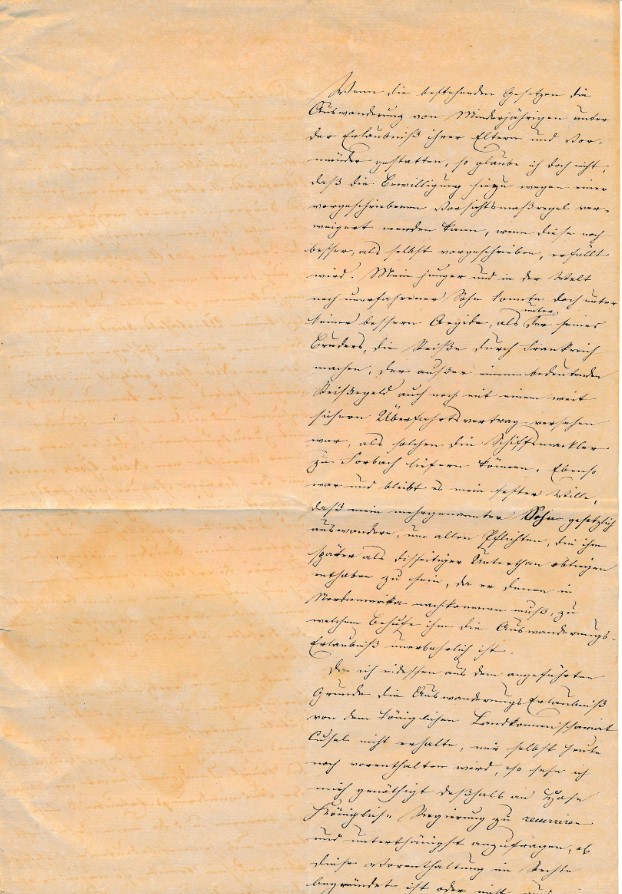 Wenn die bestehenden Gesetzen die
Auswanderung von Minderjährigen unter
der Erlaubniß ihrer Eltern und Vor-
münder gestatten, so glaube ich doch nicht,
daß die Bewilligung hiezu wegen einer
vorgeschriebenen Vorsichtsmaßregel ver-
weigert werden kann, wenn diese noch
besser, als selbst vorgeschrieben, erfüllt
wird. Mein junger und in der Welt
noch unerfahrener Sohn konnte doch unter
keiner bessern Aegide, als unter der seines
Bruders, die Reise durch Frankreich
machen, der außer einem bedeutenden
Reisegeld auch noch mit einem weit
sichern Überfahrtsvertrag versehen
war, als solchen die Schiffsmackler
zu Forbach liefern können. Ebenso
war und bleibt es mein fester Wille,
daß mein mehrgenannter Sohn gesetzlich
auswandere, um allen Pflichten, die ihm
später als disseitiger Unterthan obliegen
enthoben zu sein, da er denen in
Nordamerika nachkommen muß, zu
welchem Behufe ihm die Auswanderungs
Erlaubniß unentbehrlich ist.
Da ich indessen aus dem angeführten
Grunde die Auswanderungs Erlaubniß
von dem königlichen Landkommissariat
Cusel nicht erhalte, mir selbst heute
noch vorenthalten wird, so sehe ich
mich genöthigt deßhalb an Hohe
Königliche Regierung zu recurriren
und unterthänigst anzufragen, ob
diese Vorenthaltung im Rechte
begründet ist oder nicht